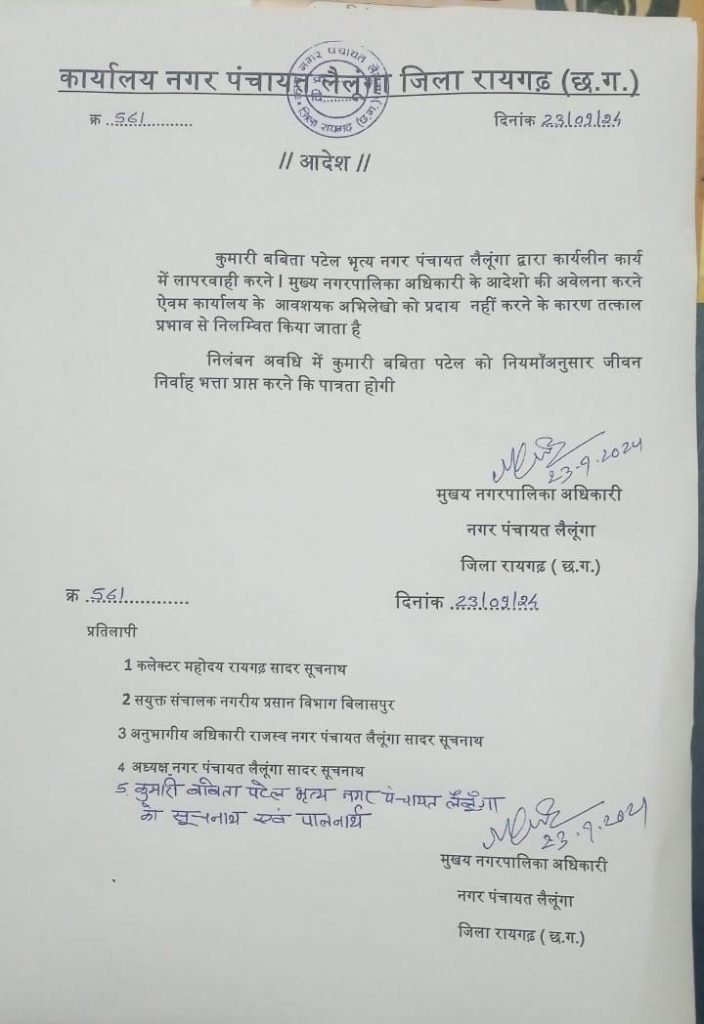 कार्यालय नगर पंचायत लैलूंगा जिला रायगढ़ (छ.ग.)
क्र 561
दिनांक 23/09/24
// आदेश //
कुमारी बबिता पटेल भृत्य नगर पंचायत लैलूंगा द्वारा कार्यलीन कार्य
में लापरवाही करने I मुख्य नगरपालिका अधिकारी के आदेशो की अवेलना करने
ऐवम कार्यालय के आवशयक अभिलेखो को प्रदाय नहीं करने के कारण तत्काल
प्रभाव से निलम्वित किया जाता है
निलंबन अवधि में कुमारी बबिता पटेल को नियमाँअनुसार जीवन
निर्वाह भत्ता प्राप्त करने कि पात्रता होगी
23.9.2024
मुखय नगरपालिका अधिकारी
नगर पंचायत लैलूंगा
जिला रायगढ़ ( छ.ग.)
क्र 561
दिनांक 23/09/24
प्रतिलापी
1 कलेक्टर महोदय रायगढ़ सादर सूचनाथ
2 सयुक्त संचालक नगरीय प्रसान विभाग बिलासपुर
3 अनुभागीय अधिकारी राजस्व नगर पंचायत लैलूंगा सादर सूचनाथ
4 अध्यक्ष नगर पंचायत लैलूंगा सादर सूचनाथ
5. कुमारी बबिता पटेल भृत्य नगर पंचायत लैलूंगा
को सूचनाथ एवं पालनार्थ
23.9.2024
मुखय नगरपालिका अधिकारी
नगर पंचायत लैलूंगा
जिला रायगढ़ ( छ.ग.)